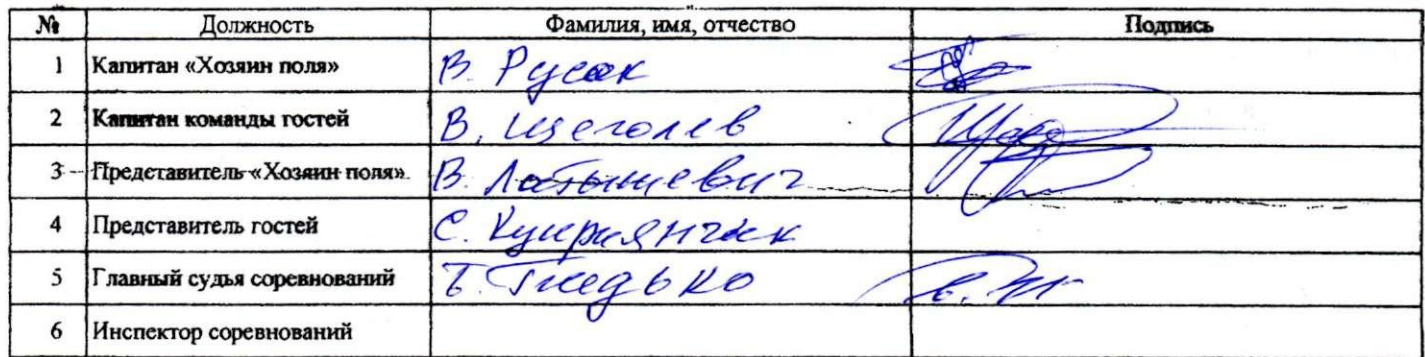 № Должность Фамилия, имя, отчество Подпись
1 Капитан «Хозяин поля» В. Русак
2 Капитан команды гостей В. Щеголев
3 Представитель «Хозяин поля» В. Латышевич
4 Представитель гостей С. Куприянчик
5 Главный судья соревнований Гледько
6 Инспектор соревнований